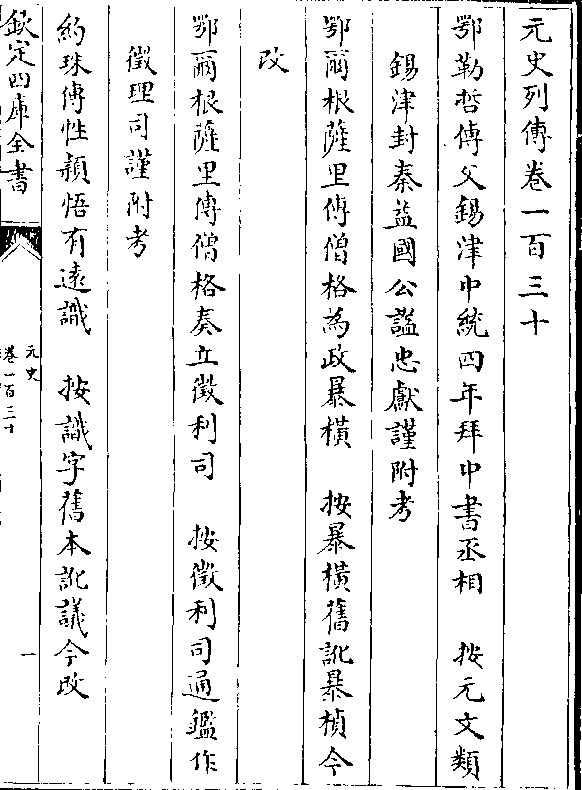 元史列傳卷一百三十
鄂勒哲傳父錫津中統四年拜中書丞相　按元文類
錫津封秦益國公諡忠獻謹附考
鄂爾根薩里傳僧格為政暴橫　按暴橫舊訛暴楨今
改
鄂爾根薩里傳僧格奏立徵利司　按徵利司通鑑作
徵理司謹附考
約珠傳性穎悟有遠識　按識字舊本訛議今改
欽定四庫全書
元史
卷一百三十
一